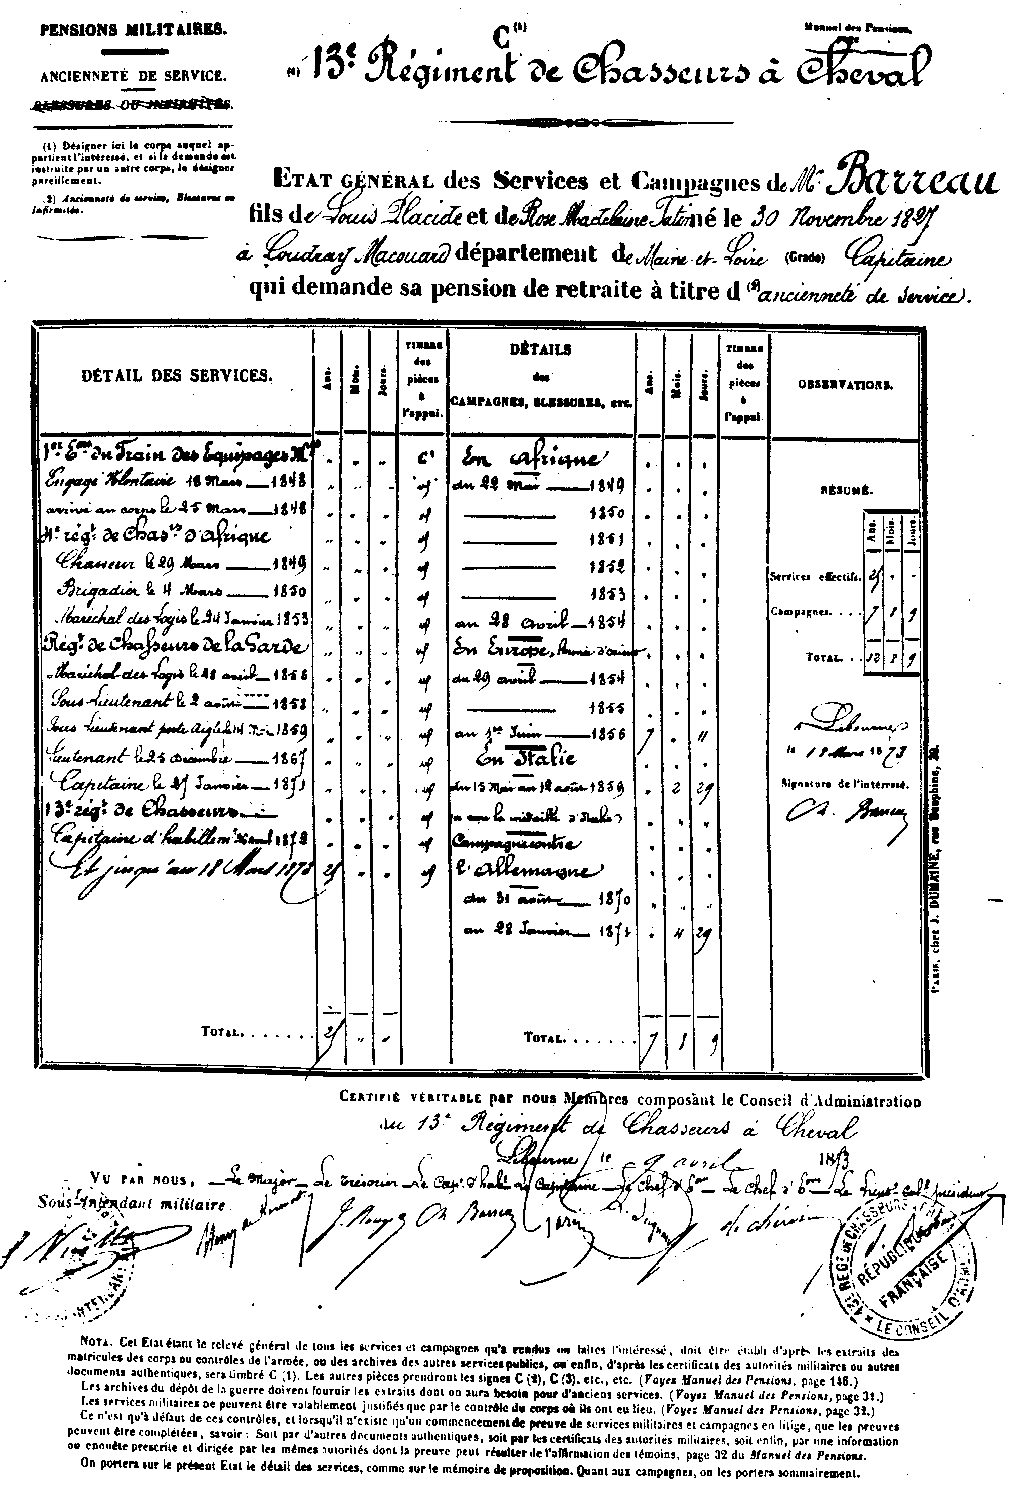 PENSIONS MILITAIRES.
ANCIENNETÉ DE SERVICE.
BLESSURES OU INFIRMITÉS.
(1) Désigner ici le corps auquel ap-
partient l'intéressé, et si la demande est
instruite par un autre corps, le désigner
pareillement.
(2) Ancienneté de service, Blessures ou
Infirmités.
C (1)
Manuel des Pensions.
(1) 13e Régiment de Chasseurs à Cheval
ETAT GÉNÉRAL des Services et Campagnes de Mr Barreau
fils de Louis Placide et de Rose Madeleine né le 30 Novembre 1827
à Coudray Macouard département de Maine et Loire (Grade) Capitaine
qui demande sa pension de retraite à titre d (2) ancienneté de service.
DÉTAIL DES SERVICES. Ans. Mois. Jours. TIMBRE des pièces à l'appui. DÉTAILS des CAMPAGNES, BLESSURES, ETC. Ans. Mois. Jours. TIMBRE des pièces à l'appui. OBSERVATIONS.
1er Eon du Train des Equipages Mres
Engagé Volontaire 18 Mars 1848
arrivé au corps le 25 Mars 1848
4e régt de Chasrs d'Afrique
Chasseur le 29 Mars 1849
Brigadier le 4 Mars 1850
Maréchal des Logis le 24 Janvier 1853
Régt de Chasseurs de la Garde
Maréchal des Logis le 28 avril 1856
Sous-Lieutenant le 2 août 1858
Sous Lieutenant porte Aigle le 14 1859
Lieutenant le 25 décembre 1867
Capitaine le 27 Janvier 1871
13e régt de Chasseurs
Capitaine d'habillemt 1872
Et jusqu'au 18 Mars 1873 25
TOTAL 25
C1
En Afrique
du 22 Mai 1849
1850
1851
1852
1853
au 28 avril 1854
En Europe, Armée d'orient
du 29 avril 1854
1855
au 1er Juin 1856 7 " "
En Italie
du 15 Mai au 12 août 1859 " 2 29
a eu la médaille d'Italie
Campagne contre
l'Allemagne
du 31 août 1870
au 28 Janvier 1871 " 4 29
TOTAL 7 1 9
RÉSUMÉ.
Ans. Mois. Jours.
Services effectifs. 25 " "
Campagnes 7 1 9
TOTAL 32 1 9
Libourne
le 18 Mars 1873
Signature de l'intéressé.
Ch. Barreau
PARIS, chez J. DUMAINE, rue Dauphine, 30.
CERTIFIÉ VÉRITABLE par nous Membres composant le Conseil d'Administration
du 13e Régiment de Chasseurs à Cheval
Libourne le 9 avril 1873
VU PAR NOUS,
Sous-Intendant militaire
Le Major Le Trésorier Le Capne d'habt Le Capitaine Le Chef d'Eon Le Chef d'Eon Le Lieut. Colel président
Ch. Barreau
13e RÉGt DE CHASSEURS
RÉPUBLIQUE FRANÇAISE
LE CONSEIL
NOTA. Cet Etat étant le relevé général de tous les services et campagnes qu'a rendus ou faites l'intéressé, doit être établi d'après les extraits des
matricules des corps ou contrôles de l'armée, ou des archives des autres services publics, ou enfin, d'après les certificats des autorités militaires ou autres
documents authentiques, sera timbré C (1). Les autres pièces prendront les signes C (2), C (3), etc., etc. (Voyez Manuel des Pensions, page 146.)
Les archives du dépôt de la guerre doivent fournir les extraits dont on aura besoin pour d'anciens services. (Voyez Manuel des Pensions, page 31.)
Les services militaires ne peuvent être valablement justifiés que par le contrôle du corps où ils ont eu lieu. (Voyez Manuel des Pensions, page 32.)
Ce n'est qu'à défaut de ces contrôles, et lorsqu'il n'existe qu'un commencement de preuve de services militaires et campagnes en litige, que les preuves
peuvent être complétées, savoir : Soit par d'autres documents authentiques, soit par les certificats des autorités militaires, soit enfin, par une information
ou enquête prescrite et dirigée par les mêmes autorités dont la preuve peut résulter de l'affirmation des témoins, page 32 du Manuel des Pensions.
On portera sur le présent Etat le détail des services, comme sur le mémoire de proposition. Quant aux campagnes, on les portera sommairement.